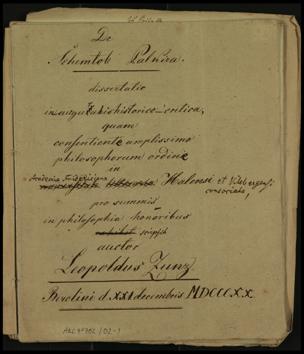 De
Schemtob Palkira.
dissertatio
inauguralis historico-critica,
quam
consentiente amplissimo
philosophorum ordine
in
Academia Fridericiana Halensi et Viteberg. consociata,
pro summis
in philosophia honoribus
scripsit
auctor
Leopoldus Zunz
Berolini d. XXI decembris MDCCCXX.
ARC 4° 792 / D2-1